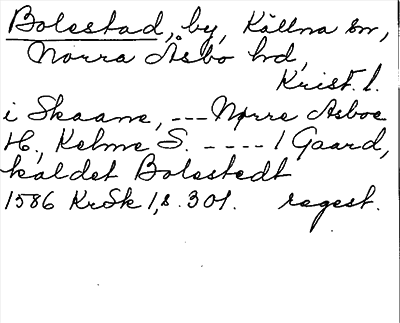 Bolestad, by, Källna sn,
Norra Åsbo hd,
Krist. l.
i Skaane, --- Nørre Asboe
H., Kelme S. ---- 1 Gaard,
kaldet Bolestedt
1586 KrSk 1, s. 301. regest.